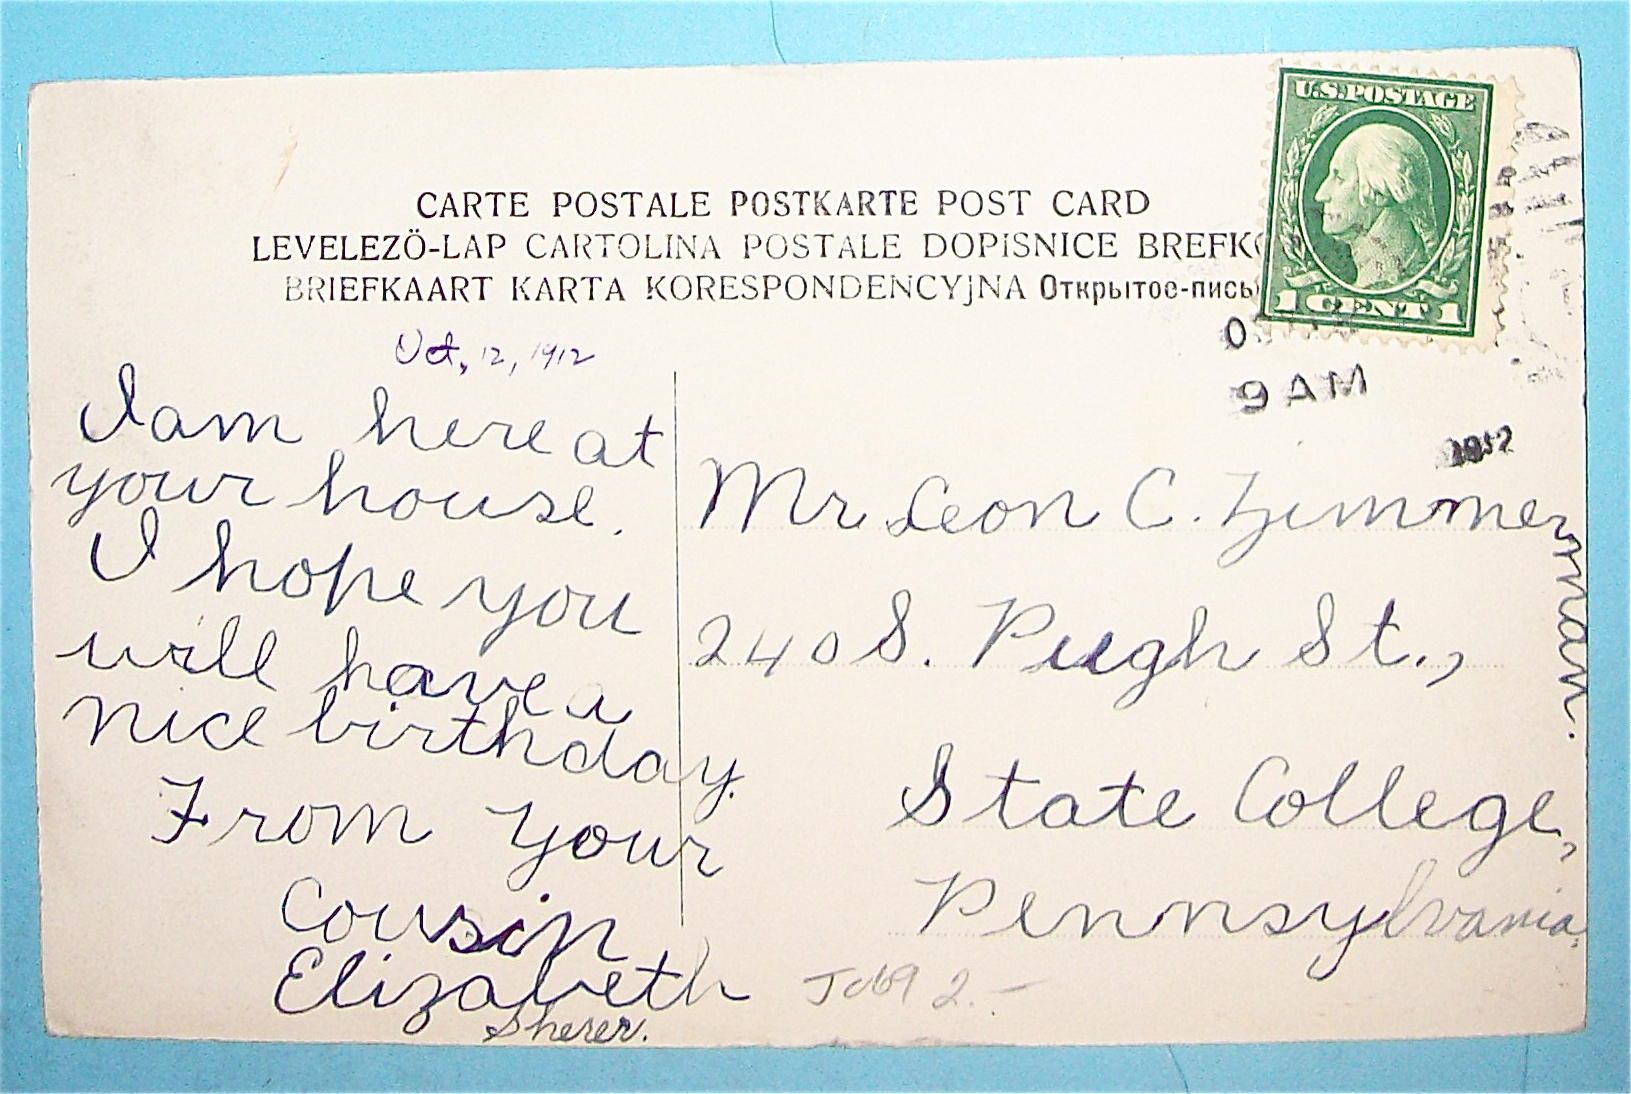 U.S. POSTAGE
1 CENT 1
CARTE POSTALE POSTKARTE POST CARD
LEVELEZÖ-LAP CARTOLINA POSTALE DOPISNICE BREFK
BRIEFKAART KARTA KORESPONDENCYJNA Открытое-пись
9 AM
1912
Oct, 12, 1912
I am here at
your house.
I hope you
will have a
nice birthday.
From your
Cousin
Elizabeth
Sherer.
Mr Leon C. Zimmerman.
240 S. Pugh St.,
State College,
Pennsylvania.
2.-